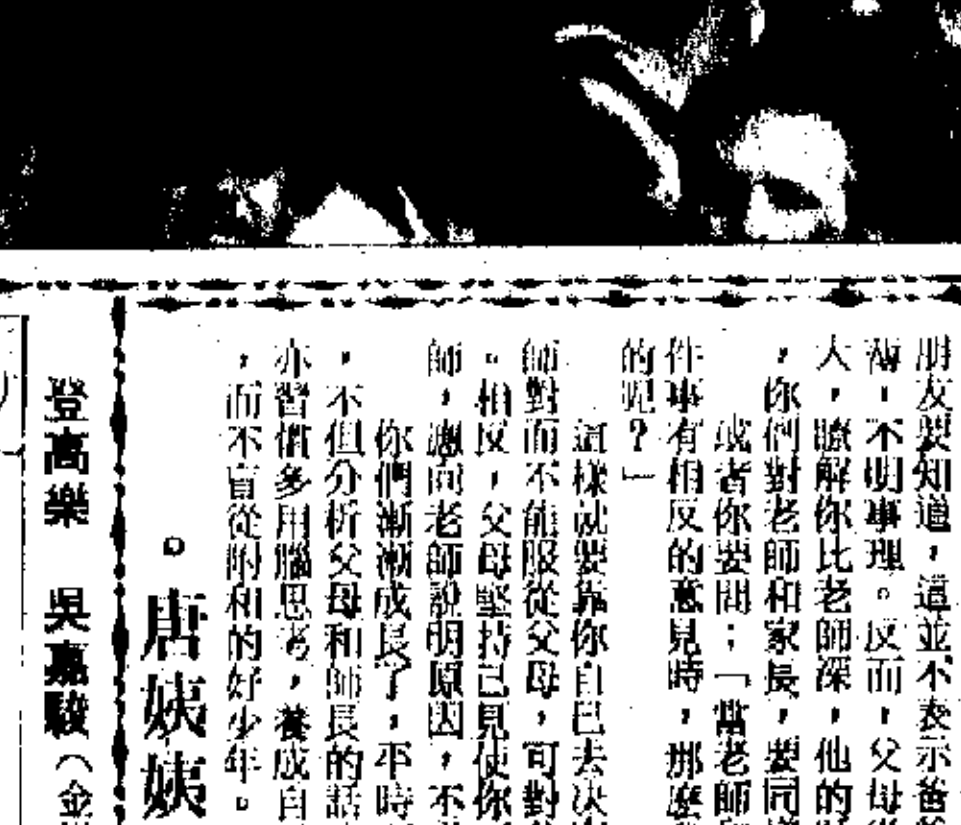 朋友要知道，這並不表示爸
薄，不明事理。反而，父母
人，瞭解你比老師深，他的
，你們對老師和家長，要同
或者你要問；「當老師
件事有相反的意見時，那麼
的呢？」
這樣就要靠你自己去決
師對而不能服從父母，可對
。相反，父母堅持己見使你
師，應向老師說明原因，不
你們漸漸成長了，平時
，不但分析父母和師長的話
亦習慣多用腦思考，養成自
，而不盲從附和的好少年。
。唐姨姨
登高樂 吳嘉駿（金